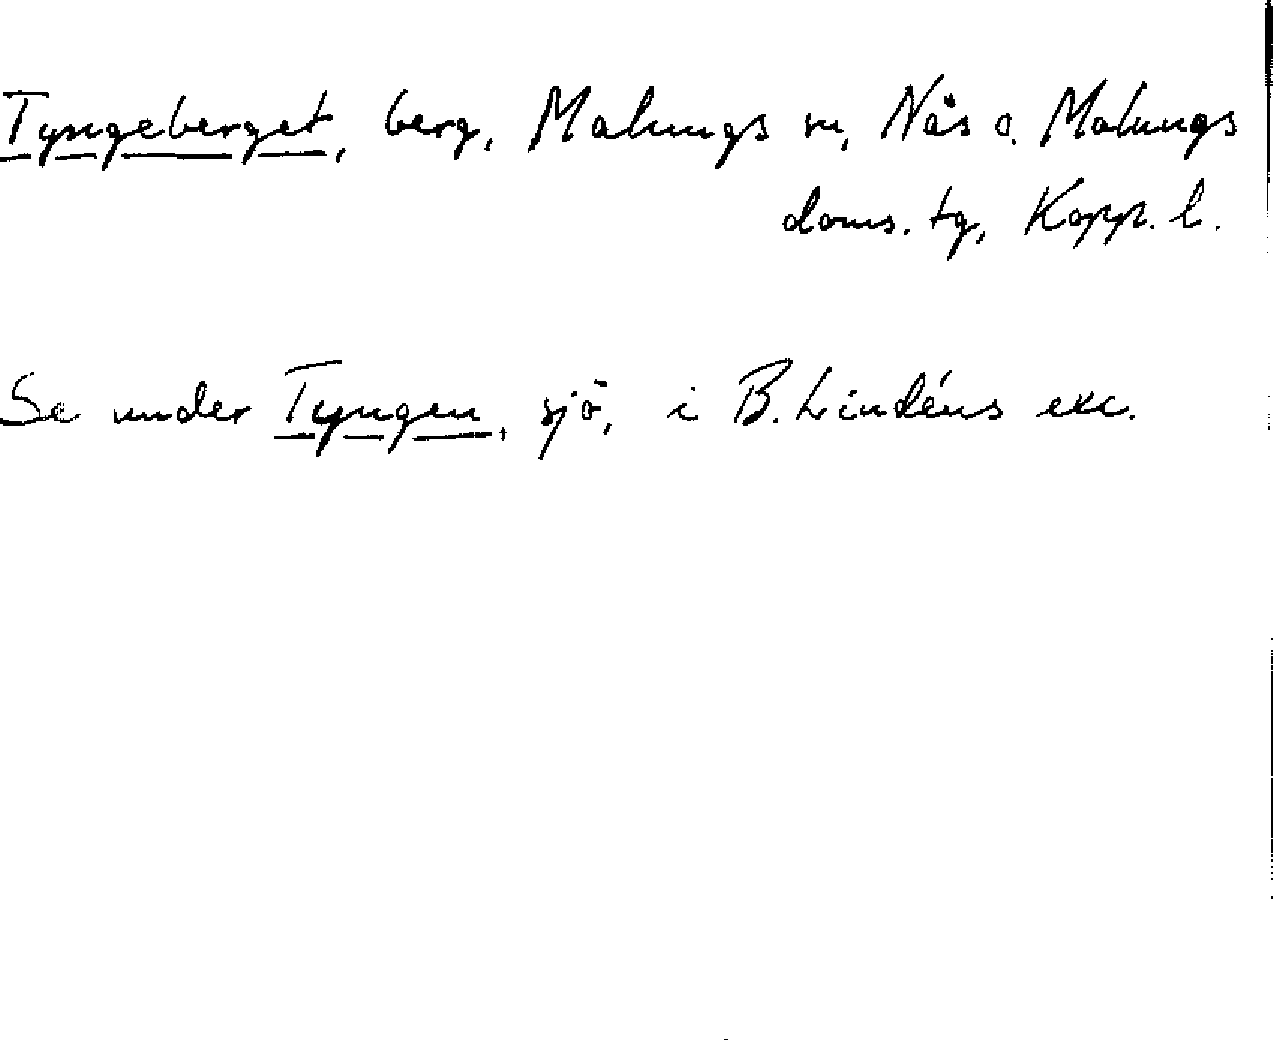 Tyngeberget, berg, Malungs sn, Nås o. Malungs
doms. tg, Kopp. l.
Se under Tyngen, sjö, i B. Lindéns exc.